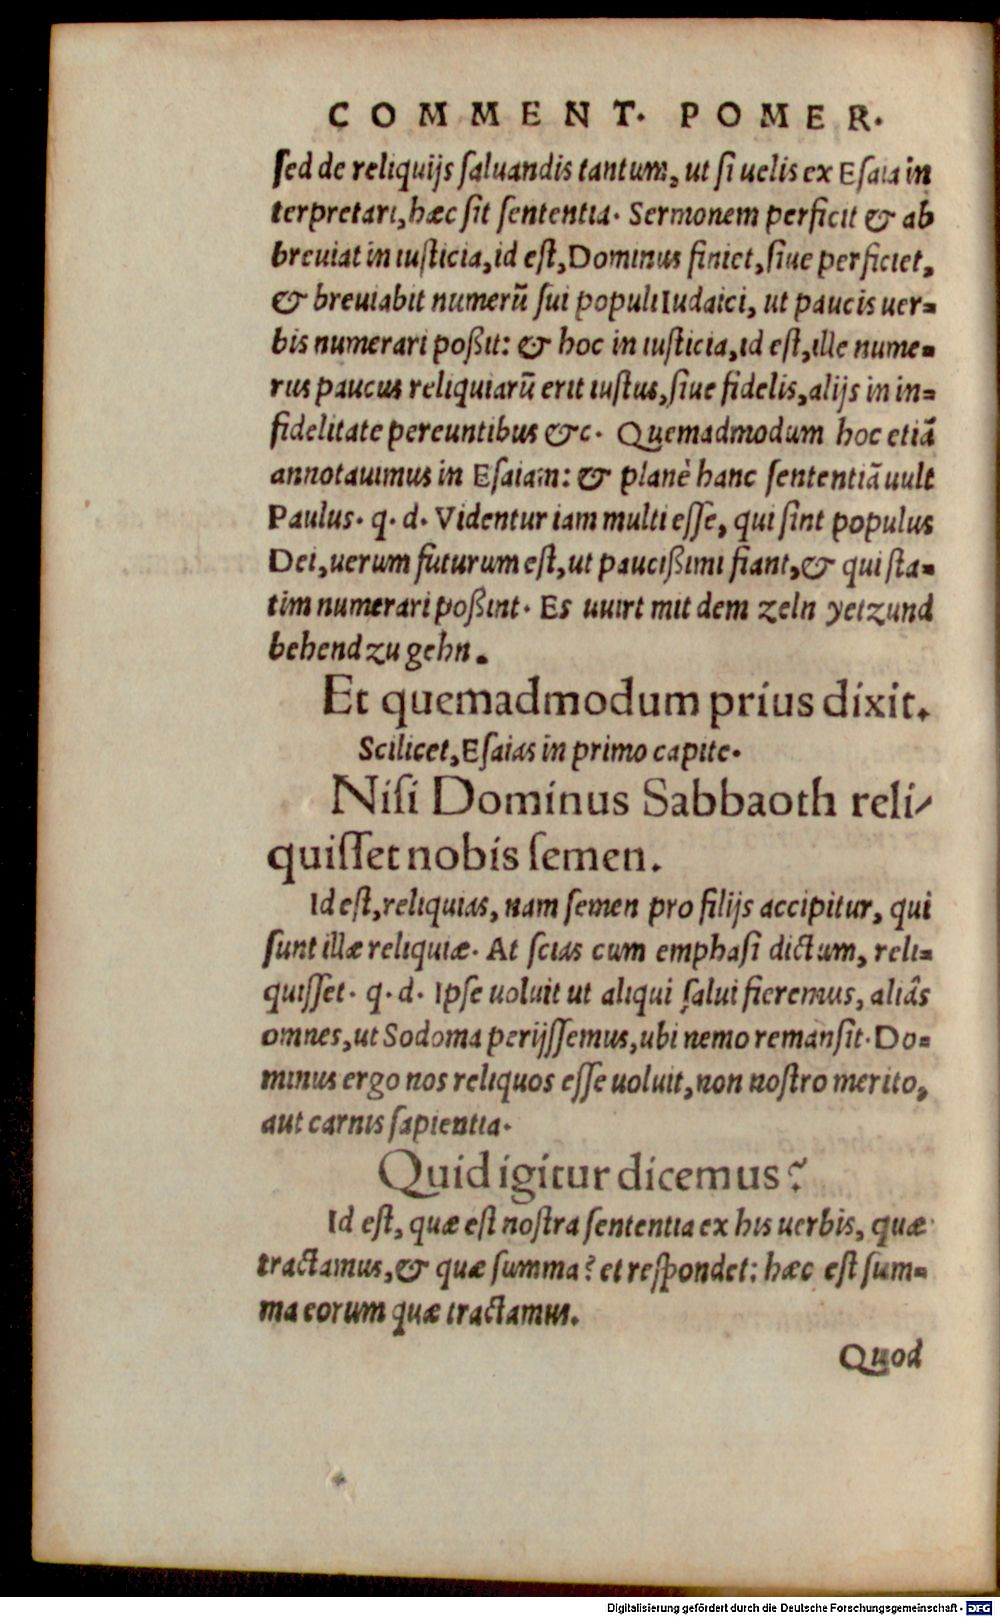 COMMENT. POMER.
sed de reliquijs saluandis tantum, ut si uelis ex Esaia in
terpretari, hæc sit sententia. Sermonem perficit & ab
breuiat in iusticia, id est, Dominus finiet, siue perficiet,
& breuiabit numerũ sui populi Iudaici, ut paucis uer=
bis numerari poßit: & hoc in iusticia, id est, ille nume=
rus paucus reliquiarũ erit iustus, siue fidelis, alijs in in=
fidelitate pereuntibus &c. Quemadmodum hoc etiã
annotauimus in Esaiam: & planè hanc sententiã uult
Paulus. q. d. Videntur iam multi esse, qui sint populus
Dei, uerum futurum est, ut paucißimi fiant, & qui sta=
tim numerari poßint. Es uuirt mit dem zeln yetzund
behend zu gehn.
Et quemadmodum prius dixit.
Scilicet, Esaias in primo capite.
Nisi Dominus Sabbaoth reli/
quisset nobis semen.
Id est, reliquias, nam semen pro filijs accipitur, qui
sunt illæ reliquiæ. At scias cum emphasi dictum, reli=
quisset. q. d. Ipse uoluit ut aliqui salui fieremus, aliâs
omnes, ut Sodoma perijssemus, ubi nemo remansit. Do=
minus ergo nos reliquos esse uoluit, non nostro merito,
aut carnis sapientia.
Quid igitur dicemus?
Id est, quæ est nostra sententia ex his uerbis, quæ
tractamus, & quæ summa? et respondet: hæc est sum=
ma eorum quæ tractamus.
Quod
Digitalisierung gefördert durch die Deutsche Forschungsgemeinschaft - DFG